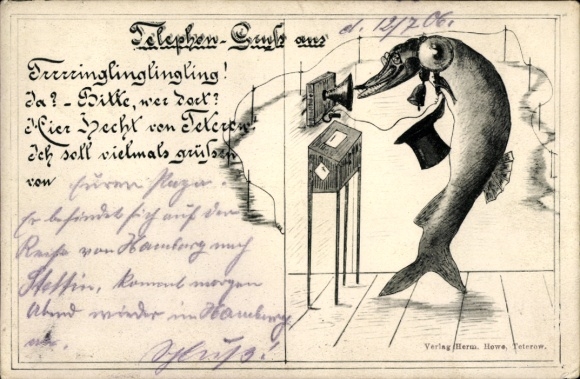 Telephon-Gruß aus
d. 12/7 06.
Trrrringlinglingling!
Ja? - Bitte, wer dort?
Hier Hecht von Teterow!
Ich soll vielmals grüßen
von Euren Papa.
Er befindet sich auf der
Reise von Hamburg nach
Stettin, kommt morgen
Abend wieder in Hamburg
an.
Schluß!
Verlag Herm. Howe, Teterow.